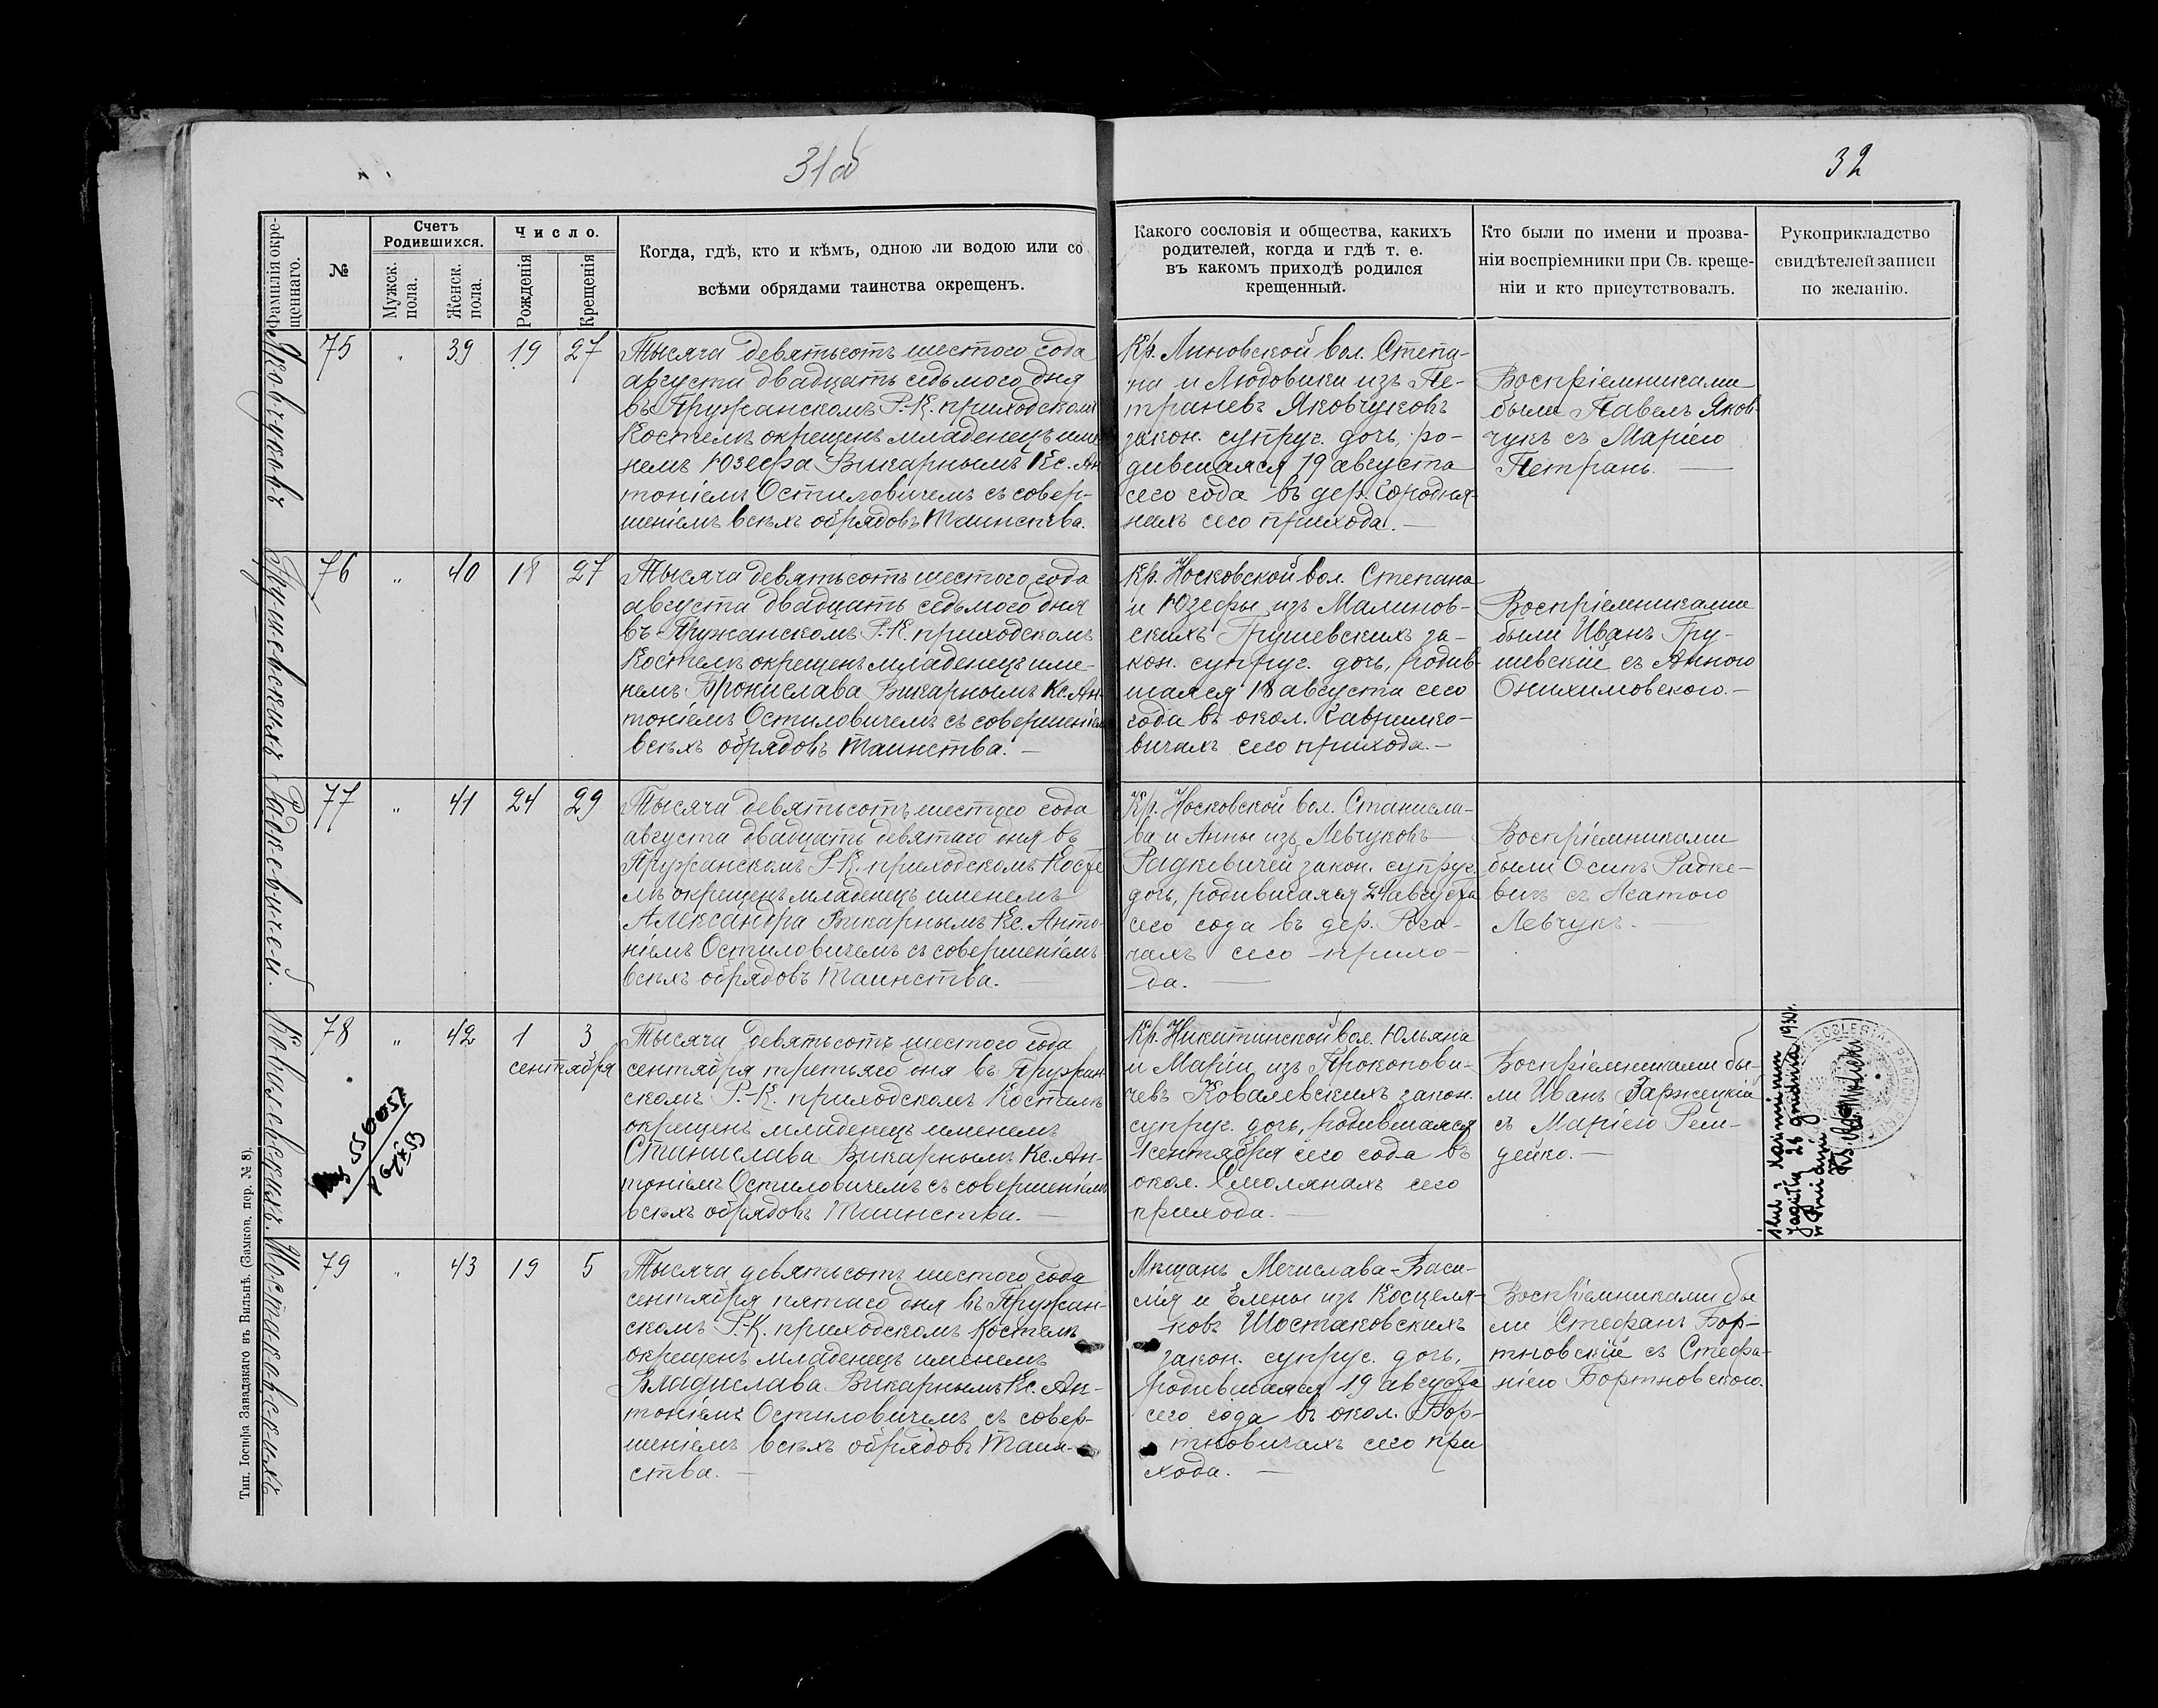 31об
32
Фамилія окре-
щеннаго.
№
Счетъ
Родившихся.
Мужск.
пола.
Женск.
пола.
Число.
Рожденія
Крещенія
Когда, гдѣ, кто и кѣмъ, одною ли водою или со
всѣми обрядами таинства окрещенъ.
Какого сословія и общества, какихъ
родителей, когда и гдѣ т. е.
въ какомъ приходѣ родился
крещенный.
Кто были по имени и прозва-
ніи воспріемники при Св. креще-
ніи и кто присутствовалъ.
Рукоприкладство
свидѣтелей записи
по желанію.
Яковчуковъ
75 " 39 19 27
Тысяча девятьсотъ шестого года
августа двадцать седьмого дня
въ Пружанскомъ Р.-К. приходскомъ
Костелѣ окрещенъ младенецъ име-
немъ Юзефа Викарнымъ Кс. Ан
тоніемъ Остиловичемъ съ совер-
шеніемъ всѣхъ обрядовъ Таинства.
Кр. Линовской вол. Степа-
на и Людовики изъ Пе-
траневъ Яковчуковъ
закон. супруг. дочь, ро-
дившаяся 19 августа
сего года въ дер. Городня-
нахъ сего прихода.
Воспріемниками
были Павелъ Яков-
чукъ съ Маріею
Петрань.
Грушевскихъ
76 " 40 18 27
Тысяча девятьсотъ шестого года
августа двадцать седьмого дня
въ Пружанскомъ Р.-К. приходскомъ
Костелѣ окрещенъ младенецъ име-
немъ Бронислава Викарнымъ Кс. Ан-
тоніемъ Остиловичемъ съ совершеніемъ
всѣхъ обрядовъ Таинства.
Кр. Носковской вол. Степана
и Юзефы изъ Малинов-
скихъ Грушевскихъ за-
кон. супруг. дочь, родив-
шаяся 18 августа сего
года въ окол. Гавриlко-
вичахъ сего прихода.
Воспріемниками
были Иванъ Гру-
шевскій съ Анною
Онихимовского.
Радкевичей.
77 " 41 24 29
Тысяча девятьсотъ шестого года
августа двадцать девятаго дня въ
Пружанскомъ Р-К. приходскомъ Косте
лѣ окрещенъ младенецъ именемъ
Александра Викарнымъ Кс. Анто-
ніемъ Остиловичемъ съ совершеніемъ
всѣхъ обрядовъ Таинства.
Кр. Носковской вол. Станисла-
ва и Анны изъ Левчуковъ
Радкевичей закон. супруг.
дочь, родившаяся 24 августа
сего года въ дер. Рога-
чахъ сего прихо-
да.
Воспріемниками
были Осипъ Радке-
вичъ съ Агатою
Левчукъ.
Ковалевскихъ.
78 " 42 1 3
сентября
Тысяча девятьсотъ шестого года
сентября третьяго дня въ Пружан-
скомъ Р.-К. приходскомъ Костелѣ
окрещенъ младенецъ именемъ
Станислава Викарнымъ Кс. Ан-
тоніемъ Остиловичемъ съ совершеніемъ
всѣхъ обрядовъ Таинства.
Кр. Никитинской вол. Юльяна
и Маріи изъ Прокопови-
чевъ Ковалевскихъ закон.
супруг. дочь, родившаяся
1 сентября сего года въ
окол. Смолянахъ сего
прихода.
Воспріемниками бы-
ли Иванъ Заржецкій
съ Маріею Рем-
дейко.
Шостаковскихъ
79 " 43 19 5
Тысяча девятьсотъ шестого года
сентября пятаго дня въ Пружан-
скомъ Р.-К. приходскомъ Костелѣ
окрещенъ младенецъ именемъ
Владислава Викарнымъ Кс. Ан-
тоніемъ Остиловичемъ съ совер-
шеніемъ всѣхъ обрядовъ Таин-
ства.
Мѣщанъ Мечислава-Васи-
лія и Елены изъ Косцеля-
ковъ Шостаковскихъ
закон. супруг. дочь,
родившаяся 19 августа
сего года въ окол. Бор-
тновичахъ сего при
хода.
Воспріемниками бы
ли Стефанъ Бор-
тновскій съ Стефа-
ніею Бортновского.
Тип. Іосифа Завадзкаго въ Вильнѣ. (Замков. пер. № 8)